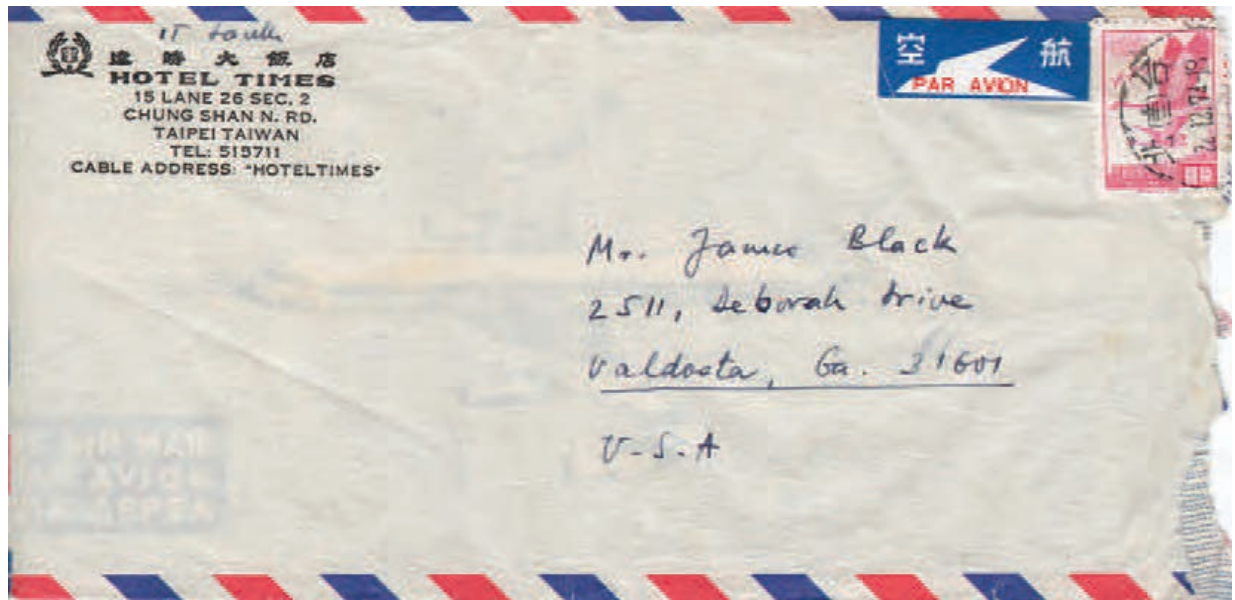 時 大 飯 店
HOTEL TIMES
15 LANE 26 SEC. 2
CHUNG SHAN N. RD.
TAIPEI TAIWAN
TEL:
CABLE ADDRESS: "HOTELTIMES"
航空
PAR AVION
Mr. James Black
2511, Deborah Drive
Valdosta, Ga. 31601
U-S-A